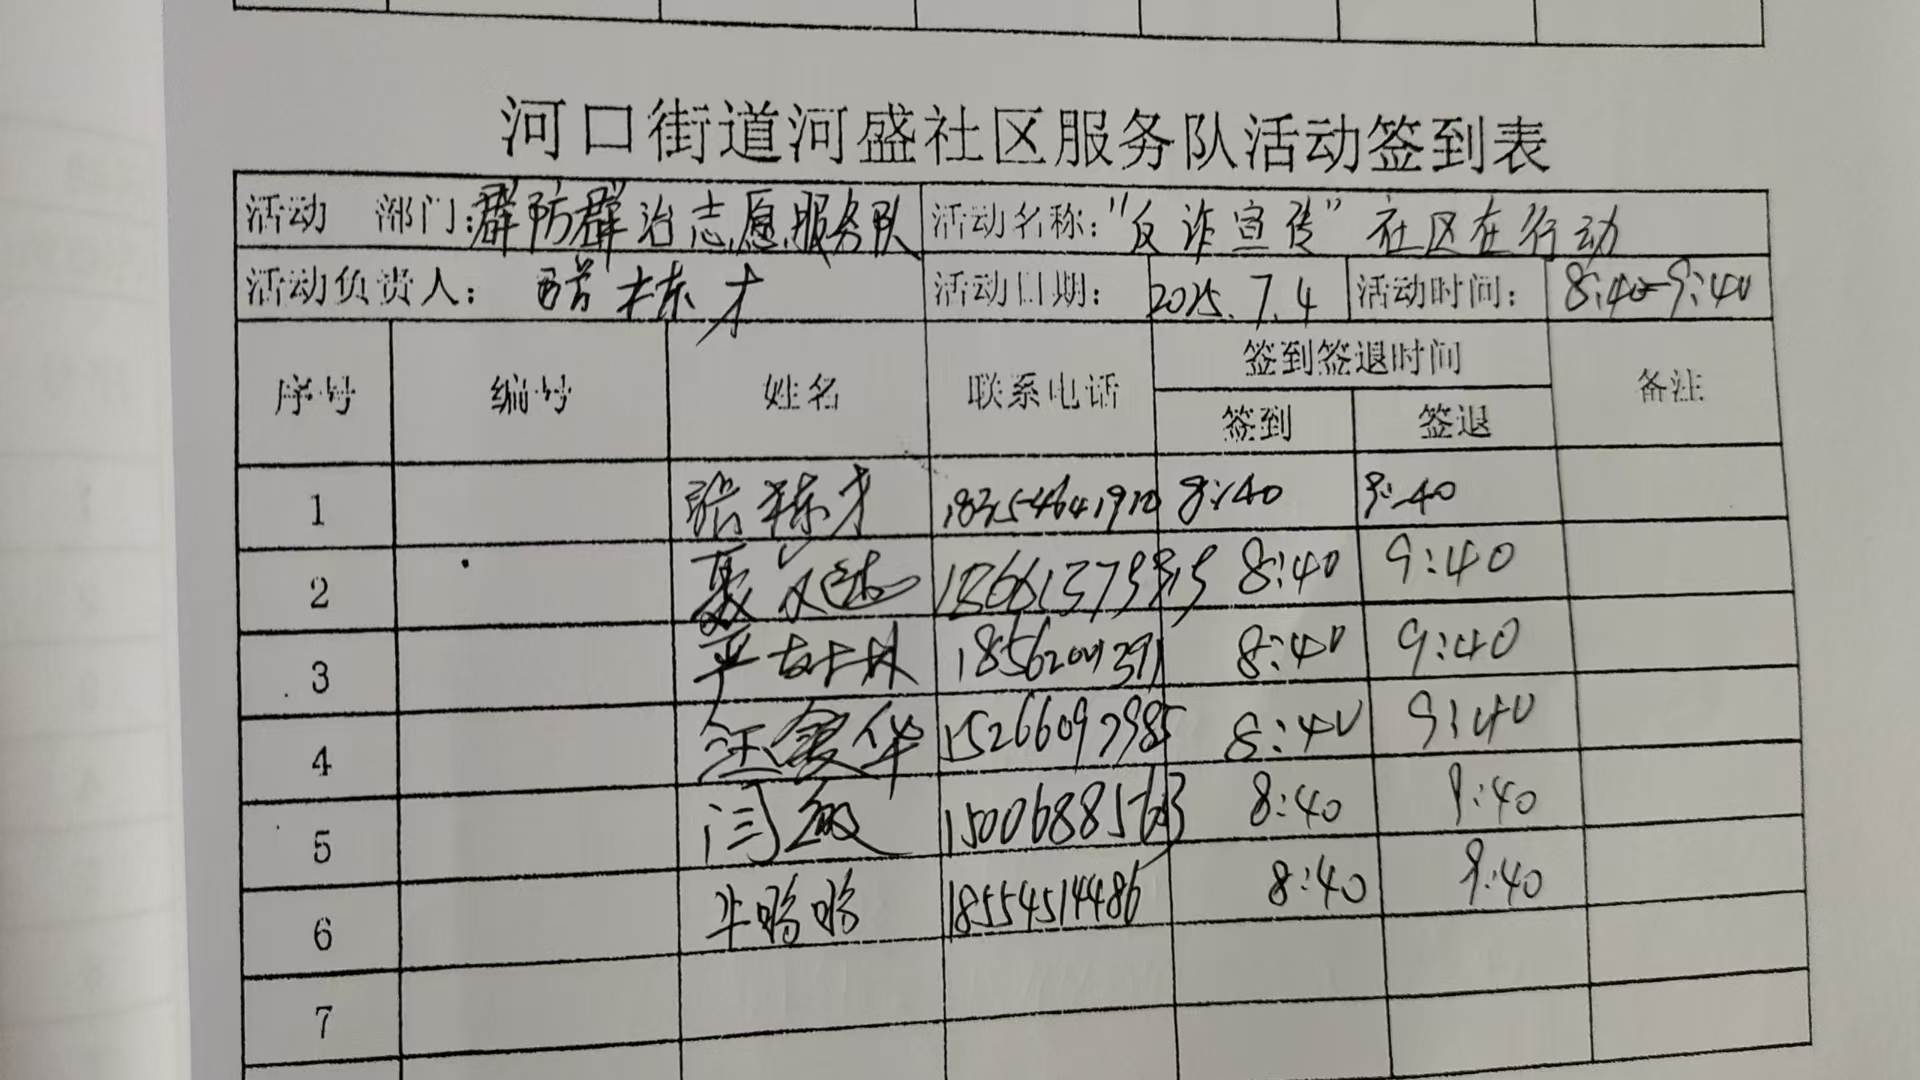 河口街道河盛社区服务队活动签到表
活动 部门：群防群治志愿服务队 活动名称：“反诈宣传”社区在行动
活动负责人： 栋才 活动日期： 2025.7.4 活动时间： 8:40-9:40
序号 编号 姓名 联系电话 签到签退时间 备注
签到 签退
1 张栋才 18354641910 8:40 9:40
2 8:40 9:40
3 8:40 9:40
4 15266097985 8:40 9:40
5 闫敏 8:40 9:40
6 牛鹏鹏 18554514486 8:40 9:40
7